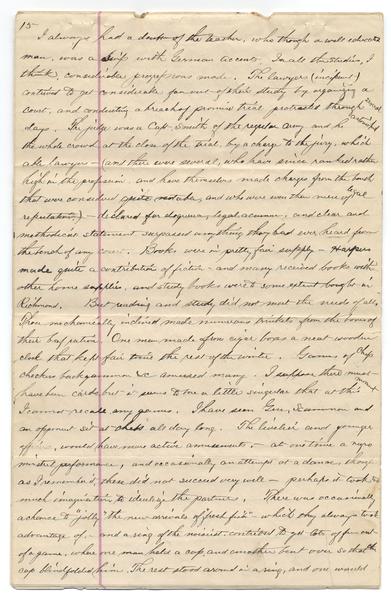 15-
I always had a doubt of the teacher, who though a well educated
man, was a Swiss with German accent. In all the studies, I
think, considerable progress was made. The lawyers (incipient)
contrived to get considerable fun out of their study by organizing a
court, and conducting a breach of promise trial protracted through several
days. The judge was a Capt. Smith of the regular army and he
the whole crowd at the close of the trial, by a charge to the jury, which
able lawyers - (and there were several, who have since ranked rather
high in the profession, and have themselves made charges from the bench
that were considered quite notable, and who were even then men of legal
reputation) - declared for eloquence, legal acumen, and clear and
methodical statement surpassed anything they had ever heard from
the bench of any court. Books were in pretty fair supply - Harpers
made quite a contribution of fiction - and many received books with
other home supplies, and study books were to some extent bought in
Richmond. But reading and study did not meet the needs of all,
Those mechanically inclined made numerous trinkets from the bones of
their beef ration. One man made of a cigar box a neat wooden
clock that kept fair time the rest of the winter. Games of Chess
checkers backgammon &c amused many. I suppose there must
have been cards but it seems to me a little singular that at this
I cannot recall any games. I have seen Gen. Scammon and
an opponent sit at chess all day long. The livelier and younger
officers, would have more active amusements, - at one time a negro
minstrel performance, and occasionally an attempt at a dance, though
as I remember it, these did not succeed very well - perhaps it took too
much imagination to idealize the partners. There was occasionally
a chance to "jolly" the new arrivals or "fresh fish" which they always took
advantage of, - and a ring of the noisiest contrived to get lots of fun out
of a game, where one man held a cap and another bent over so that the
cap blindfolded him. The rest stood around in a ring, and one would